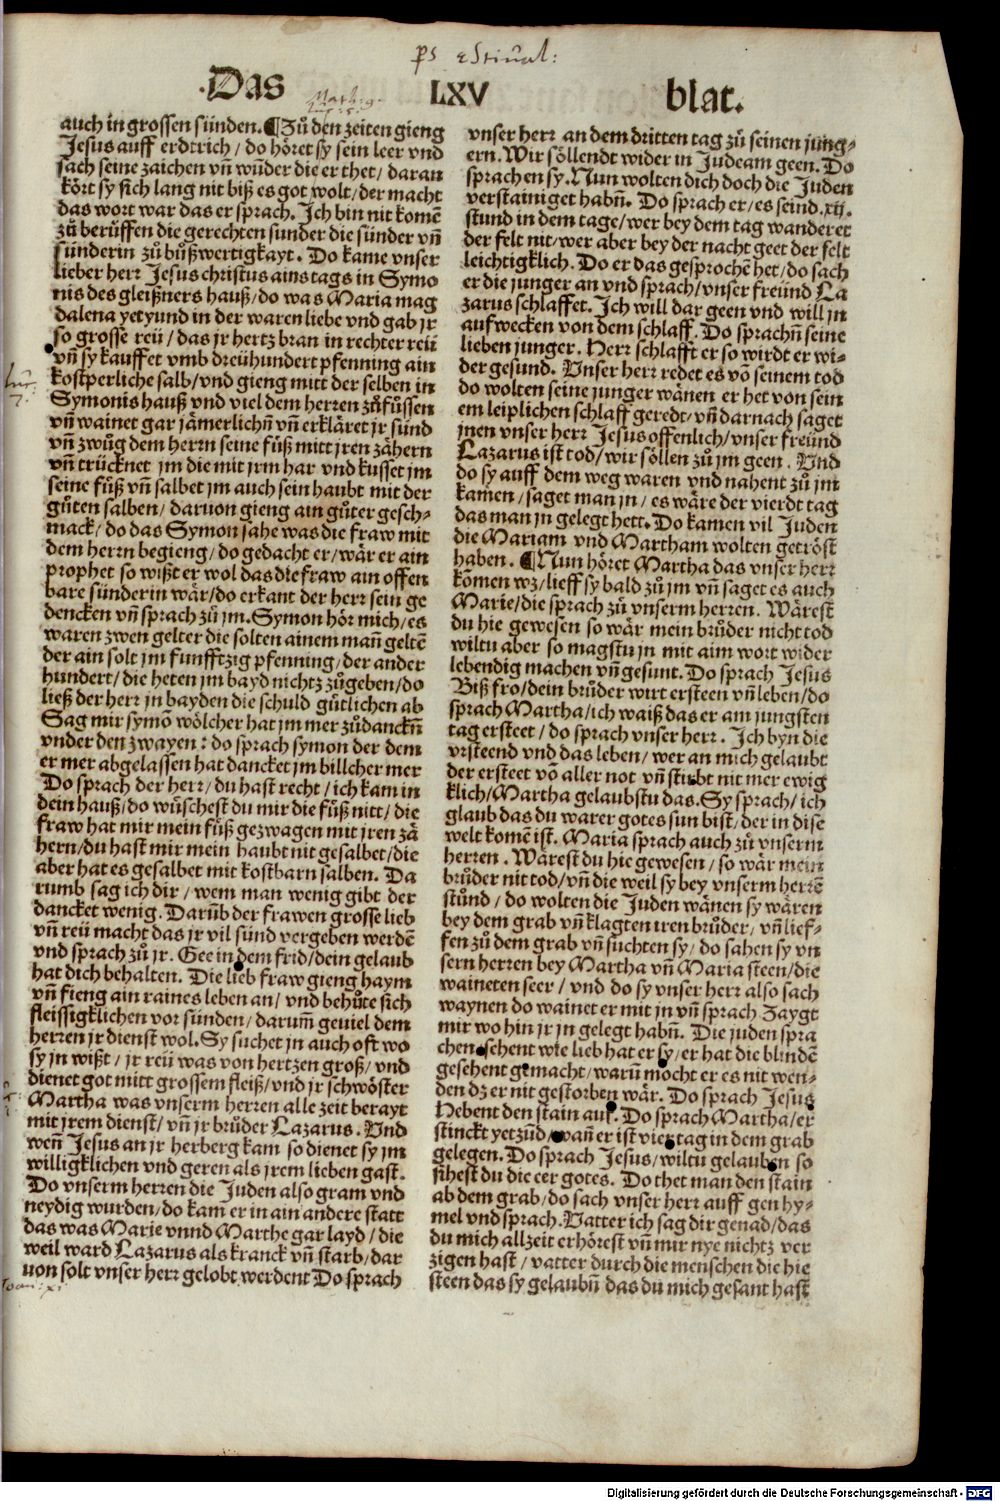 ·Das LXV blat.
auch in grossen sünden. ¶Zů den zeiten gieng
Jesus auff erdtrich / do höret sy sein leer vnd
sach seine zaichen vñ wũder die er thet / daran
kört sy sich lang nit biß es got wolt / der macht
das wort war das er sprach. Ich bin nit komẽ
zů berůffen die gerechten sunder die sünder vñ
sünderin zů bůßwertigkayt. Do kame vnser
lieber herr Jesus christus ains tags in Symo
nis des gleißners hauß / do was Maria mag
dalena yetyund in der waren liebe vnd gab jr
so grosse reü / das jr hertz bran in rechter reü
vñ sy kauffet vmb dreühundert pfenning ain
kostperliche salb / vnd gieng mitt der selben in
Symonis hauß vnd viel dem herren zůfůssen
vñ wainet gar jämerlichñ vñ erkläret jr sünd
vñ zwůg dem herrn seine fůß mitt jren zähern
vñ trücknet jm die mit jrm har vnd kusset jm
seine fůß vñ salbet jm auch sein haubt mit der
gůten salben / daruon gieng ain gůter gesch-
mack / do das Symon sahe was die fraw mit
dem herrn begieng / do gedacht er / wär er ain
prophet so wißt er wol das die fraw ain offen
bare sünderin wär / do erkant der herr sein ge
dencken vñ sprach zů jm. Symon hör mich / es
waren zwen gelter die solten ainem mañ geltẽ
der ain solt jm funfftzig pfenning / der ander
hundert / die heten jm bayd nichtz zůgeben / do
ließ der herr jn bayden die schuld gůtlichen ab
Sag mir symõ wölcher hat im mer zůdanckñ
vnder den zwayen : do sprach symon der dem
er mer abgelassen hat dancket jm billcher mer
Do sprach der herr / du hast recht / ich kam in
dein hauß / do wůschest du mir die fůß nitt / die
fraw hat mir mein fůß gezwagen mit jren zä
hern / du hast mir mein haubt nit gesalbet / die
aber hat es gesalbet mit kostbarn salben. Da
rumb sag ich dir / wem man wenig gibt der
dancket wenig. Darũb der frawen grosse lieb
vñ reü macht das jr vil sünd vergeben werdẽ
vnd sprach zů jr. Gee in dem frid / dein gelaub
hat dich behalten. Die lieb fraw gieng haym
vñ fieng ain raines leben an / vnd behůte sich
fleissigklichen vor sünden / darum̃ geuiel dem
herren jr dienst wol. Sy suchet jn auch oft wo
sy jn wißt / jr reü was von hertzen groß / vnd
dienet got mitt grossem fleiß / vnd jr schwöster
Martha was vnserm herren alle zeit berayt
mit jrem dienst / vñ jr brůder Lazarus. Vnd
weñ Jesus an jr herberg kam so dienet sy jm
willigklichen vnd geren als jrem lieben gast.
Do vnserm herren die Juden also gram vnd
neydig wurden / do kam er in ain andere statt
das was Marie vnnd Marthe gar layd / die
weil ward Lazarus als kranck vñ starb / dar
uon solt vnser herr gelobt werdent Do sprach
vnser herr an dem dritten tag zů seinen jung-
ern. Wir söllendt wider in Judeam geen. Do
sprachen sy. Nun wolten dich doch die Juden
verstainiget habñ. Do sprach er / es seind .xij.
stund in dem tage / wer bey dem tag wanderet
der felt nit / wer aber bey der nacht geet der felt
leichtigklich. Do er das gesprochẽ het / do sach
er die junger an vnd sprach / vnser freünd La
zarus schlaffet. Ich will dar geen vnd will jn
aufwecken von dem schlaff. Do sprachñ seine
lieben junger. Herr schlafft er so wirdt er wi-
der gesund. Vnser herr redet es võ seinem tod
do wolten seine junger wänen er het von sein
em leiplichen schlaff geredt / vñ darnach saget
jnen vnser herr Jesus offenlich / vnser freünd
Lazarus ist tod / wir söllen zů jm geen. Vnd
do sy auff dem weg waren vnd nahent zů im
kamen / saget man jn / es wäre der vierdt tag
das man jn gelegt hett. Do kamen vil Juden
die Mariam vnd Martham wolten getröst
haben. ¶Nun höret Martha das vnser herr
kõmen wz / lieff sy bald zů jm vñ saget es auch
Marie / die sprach zů vnserm herren. Wärest
du hie gewesen so wär mein brůder nicht tod
wiltu aber so magstu jn mit aim wort wider
lebendig machen vñ gesunt. Do sprach Jesus
Biß fro / dein brůder wirt ersteen vñ leben / do
sprach Martha / ich waiß das er am jungsten
tag ersteet / do sprach vnser herr. Ich byn die
vrsteend vnd das leben / wer an mich gelaubt
der ersteet võ aller not vñ stirbt nit mer ewig
klich / Martha gelaubstu das. Sy sprach / ich
glaub das du warer gotes sun bist / der in dise
welt komẽ ist. Maria sprach auch zů vnserm
herren. Wärest du hie gewesen / so wär mein
brůder nit tod / vñ die weil sy bey vnserm herrẽ
stůnd / do wolten die Juden wänen sy wären
bey dem grab vñ klagten iren brůder / vñ lief-
fen zů dem grab vñ suchten sy / do sahen sy vn
sern herren bey Martha vñ Maria steen / die
waineten seer / vnd do sy vnser herr also sach
waynen do wainet er mit jn vñ sprach Zaygt
mir wo hin jr jn gelegt habñ. Die juden spra
chen sehent wie lieb hat er sy / er hat die blindẽ
gesehent gemacht / warũ mocht er es nit wen-
den dz er nit gestorben wär. Do sprach Jesus
Hebent den stain auf. Do sprach Martha / er
stinckt yetzũd / wañ er ist vier tag in dem grab
gelegen. Do sprach Jesus / wiltu gelauben so
sihest du die eer gotes. Do thet man den stain
ab dem grab / do sach vnser herr auff gen hy-
mel vnd sprach. Vatter ich sag dir genad / das
du mich allzeit erhörest vñ mir nye nichtz ver
zigen hast / vatter durch die menschen die hie
steen das sy gelaubñ das du mich gesant hast
Digitalisierung gefördert durch die Deutsche Forschungsgemeinschaft - DFG